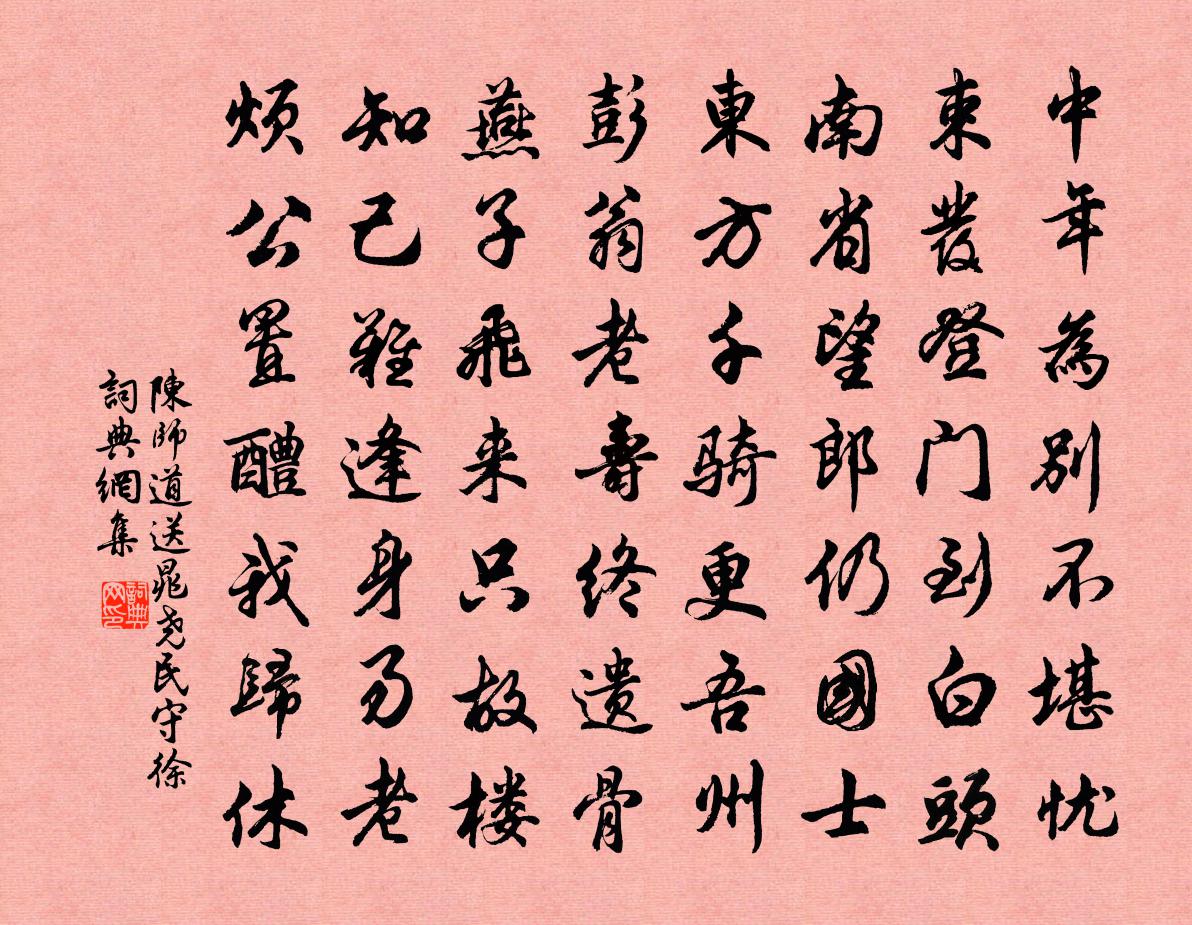 中年為別不堪忧
束發登门到白頭
南省望郎仍國士
東方千骑更吾州
彭翁老壽終遗骨
燕子飛来只故楼
知己難逢身易老
煩公置醴我歸休
陳師道送晁尧民守徐
詞典網集
詞典网印